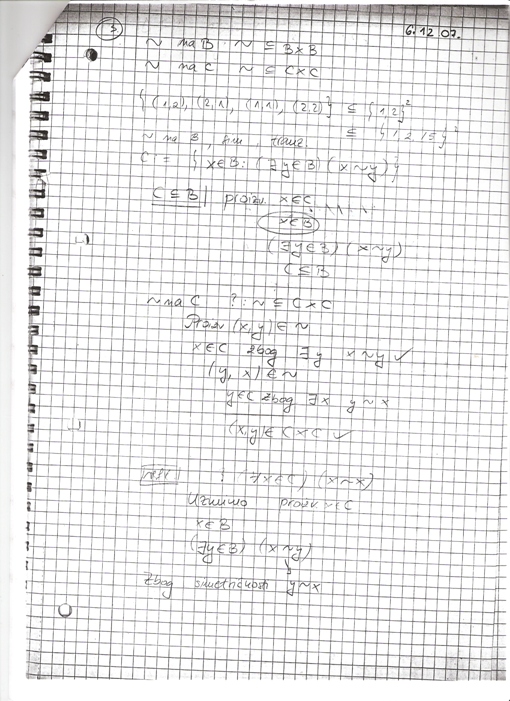 3 6.12.07.
~ na B ~ ⊆ B×B
~ na C ~ ⊆ C×C
{(1,2), (2,1), (1,1), (2,2)} ⊆ {1,2}²
⊆ {1,2,15}²
~ na B, sim, tranz.
C := {x∈B: (∃y∈B) (x~y)}
C⊆B proizv. x∈C
x∈B
(∃y∈B) (x~y)
C⊆B
~ na C ?: ~ ⊆ C×C
Proizv (x,y)∈~
x∈C zbog ∃y x~y ✓
(y,x)∈~
y∈C zbog ∃x y~x
(x,y)∈C×C ✓
? (∀x∈C) (x~x)
Uzmimo proizv. x∈C
x∈B
(∃y∈B) (x~y)
Zbog simetričnosti y~x